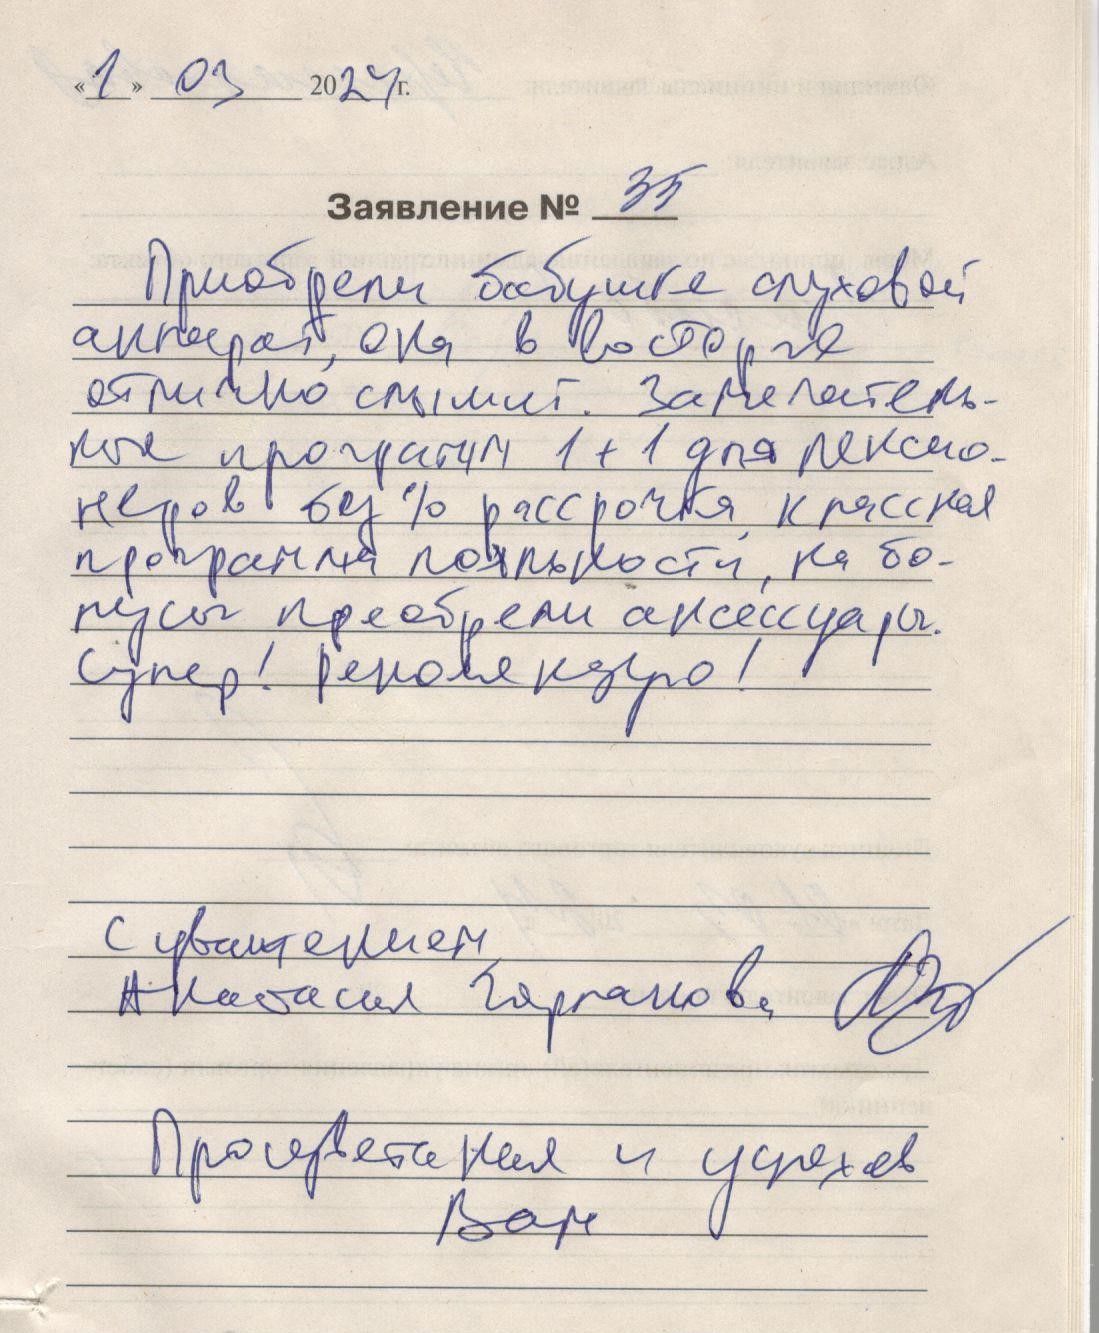 «1» 03 2024 г.
Заявление № 35
Приобрели бабушке слуховой
аппарат, она в восторге
отлично слышит. Замечатель-
ная программ 1+1 для пенсио-
неров без % рассрочка, классная
программа лояльности, на бо-
нусы преобрели аксессуары.
Супер! рекомендую!
С уважением
Анастасия
Процветания и успехов
Вам